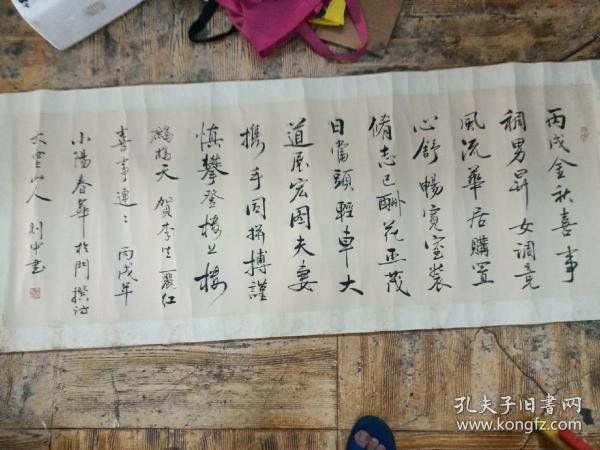 丙戌金秋喜事
稠男昇女调竟
風流華居購置
心舒暢寬室装
脩志已酬花正茂
日當頭輕車大
道展宏圖夫妻
携手同拼搏謹
慎攀登樓上樓
鷓鴣天 賀李 麗红
喜事連々 丙戌年
小陽春華於門撰
山人 刘中書
孔夫子旧書网
www.kongfz.com